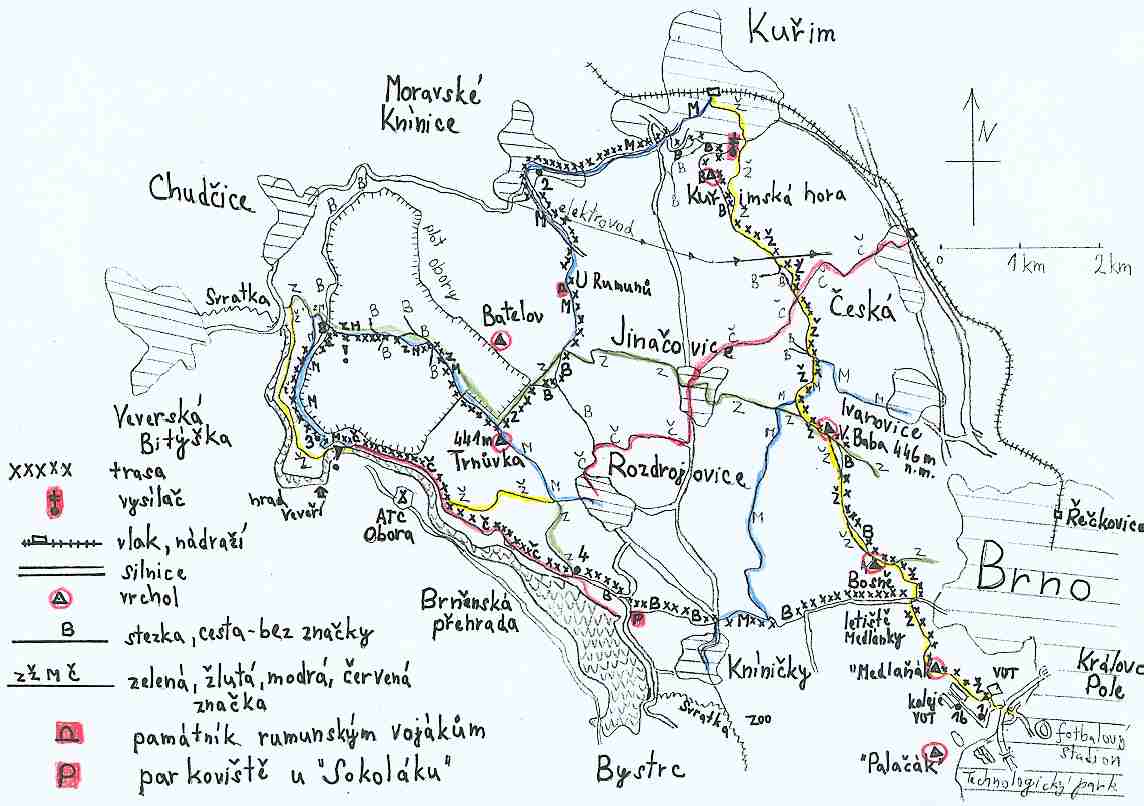 Kuřim
Moravské
Knínice
N
Chudčice
2
Kuř imská hora
elektrovod
plot
obory
0
1 km
2 km
U Rumunů
Svratka
Batelov
Česká
Jinačovice
Veverská
Bitýška
Ivanovice
V. Baba 446 m
n.m.
441m
Trnůvka
3
Rozdrojovice
xxxxx trasa
vysílač
hrad
Veveří
ATC
Obora
Řečkovice
vlak, nádraží
silnice
4
Bosně
Brno
vrchol
Brněnská
přehrada
letiště
Medlánky
B stezka, cesta-bez značky
P
Kníničky
"Medlaňák"
VUT
Královo
Pole
z ž M č zelená, žlutá, modrá, červená
značka
koleje
VUT
1b
1
Svratka
ZOO
fotbalový
stadion
památník rumunským vojákům
P parkoviště u "Sokoláku"
Bystrc
"Palačák"
Technologický park